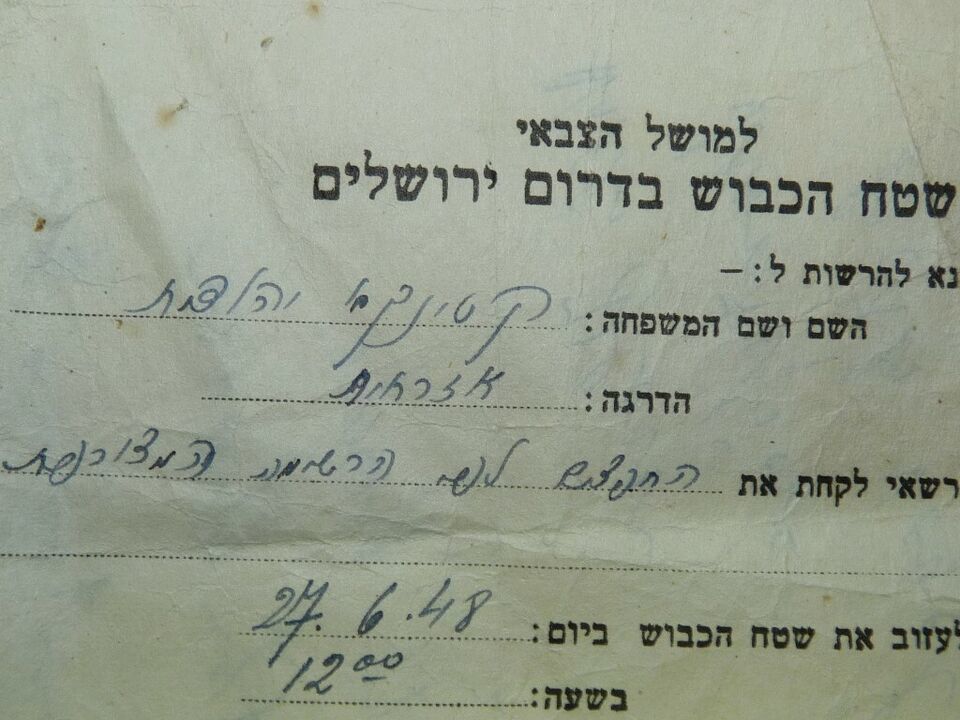 למושל הצבאי
שטח הכבוש בדרום ירושלים
נא להרשות ל: —
השם ושם המשפחה: קטינקא
הדרגה: אזרחית
רשאי לקחת את החפצים לפי הרשימה המצורפת
לעזוב את שטח הכבוש ביום: 27.6.48
בשעה: 12⁰⁰